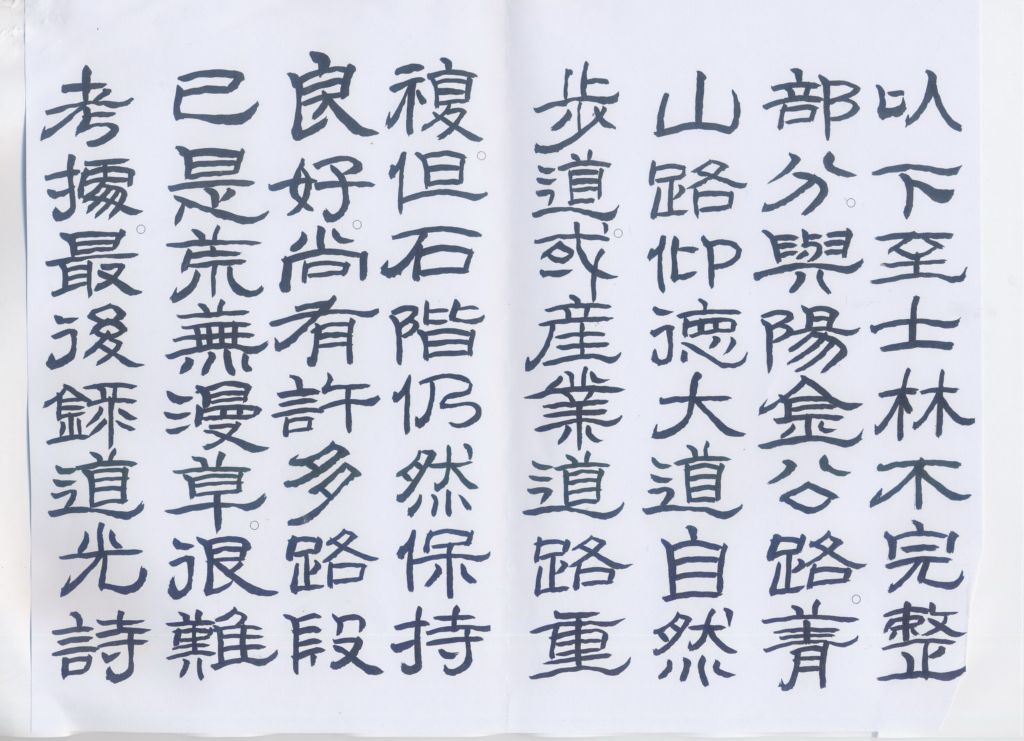 以下至士林不完整
部分。與陽金公路。菁
山路仰德大道自然
步道。或産業道路重
複。但石階仍然保持
良好。尚有許多路段
已是荒蕪漫草。很難
考據。最後錄道光詩